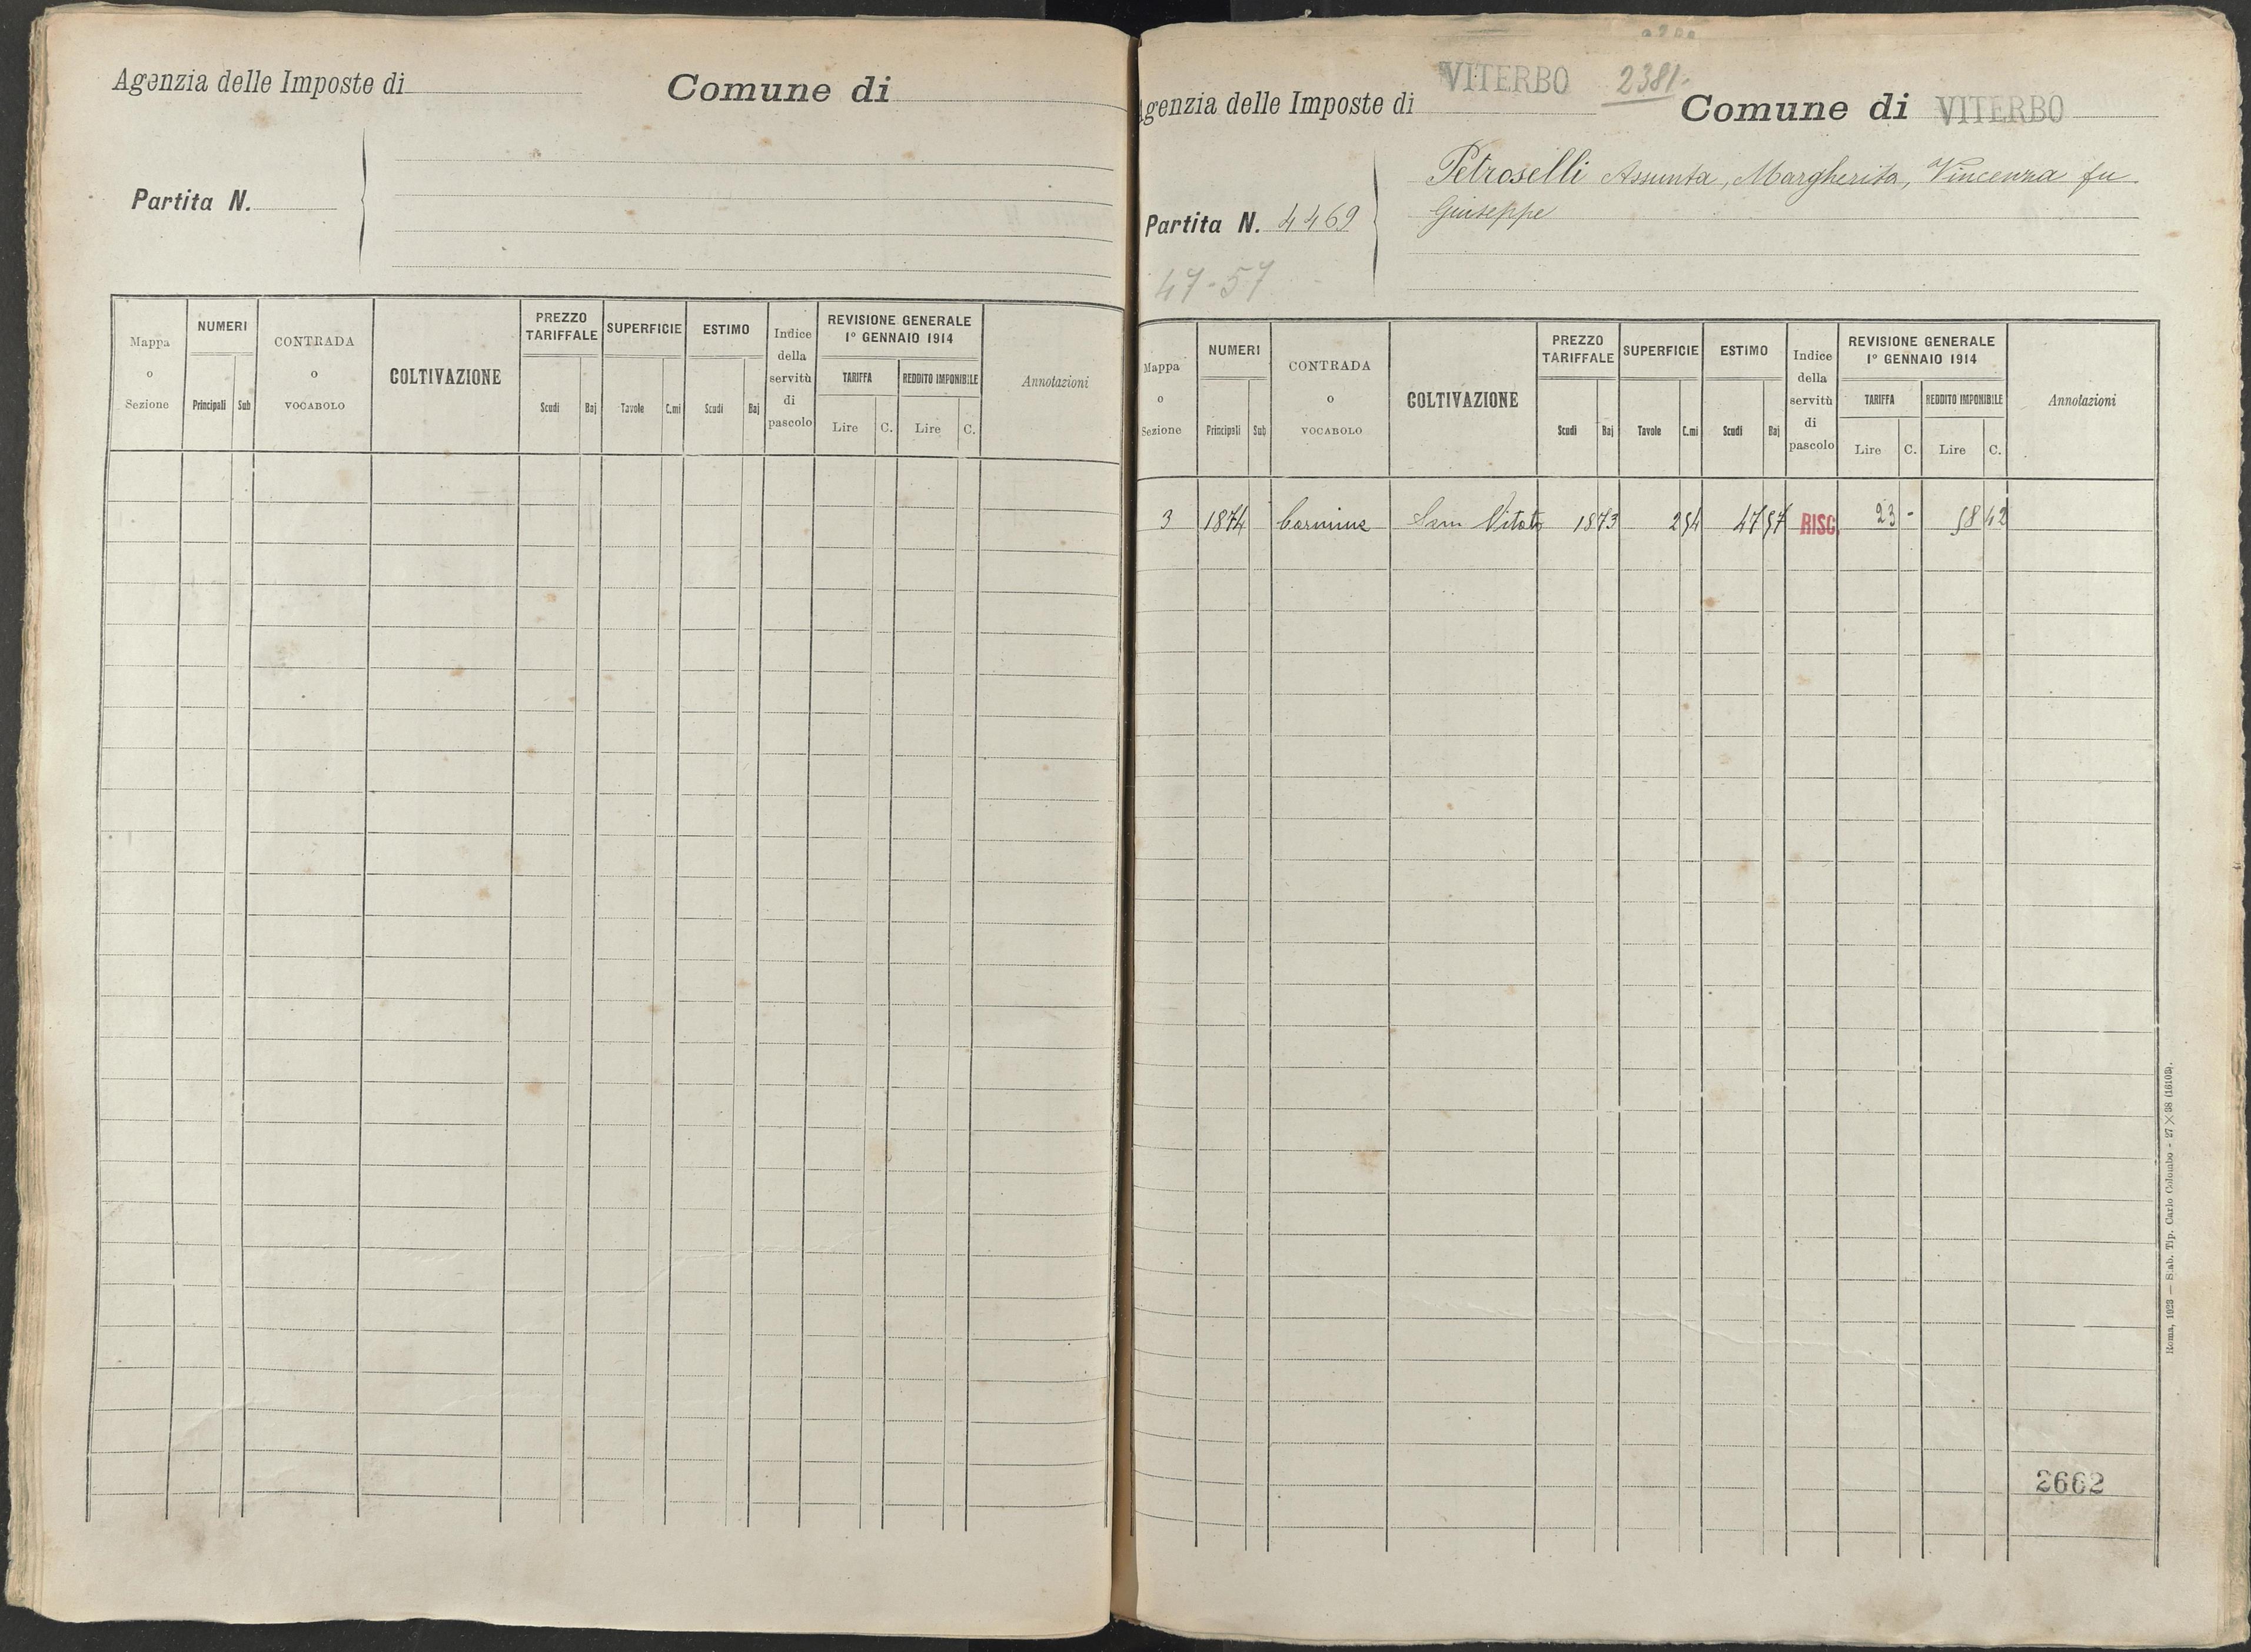 Agenzia delle Imposte di
Comune di
Partita N.
Mappa o Sezione
NUMERI
Principali
Sub
CONTRADA o VOCABOLO
COLTIVAZIONE
PREZZO TARIFFALE
Scudi
Baj
SUPERFICIE
Tavole
C.mi
ESTIMO
Scudi
Baj
Indice della servitù di pascolo
REVISIONE GENERALE
1° GENNAIO 1914
TARIFFA
REDDITO IMPONIBILE
Lire
C.
Lire
C.
Annotazioni
Agenzia delle Imposte di VITERBO
2381
Comune di VITERBO
Partita N. 4469
Petroselli Assunta, Margherita, Vincenza fu
Giuseppe
47-57
Mappa o Sezione
NUMERI
Principali
Sub
CONTRADA o VOCABOLO
COLTIVAZIONE
PREZZO TARIFFALE
Scudi
Baj
SUPERFICIE
Tavole
C.mi
ESTIMO
Scudi
Baj
Indice della servitù di pascolo
REVISIONE GENERALE
1° GENNAIO 1914
TARIFFA
REDDITO IMPONIBILE
Lire
C.
Lire
C.
Annotazioni
3 1874 Carmine Sem Vitato 1873 254 4757 RISC. 23 - 58 42
2662
Roma, 1923 — Stab. Tip. Carlo Colombo - 27 × 38 (16103).